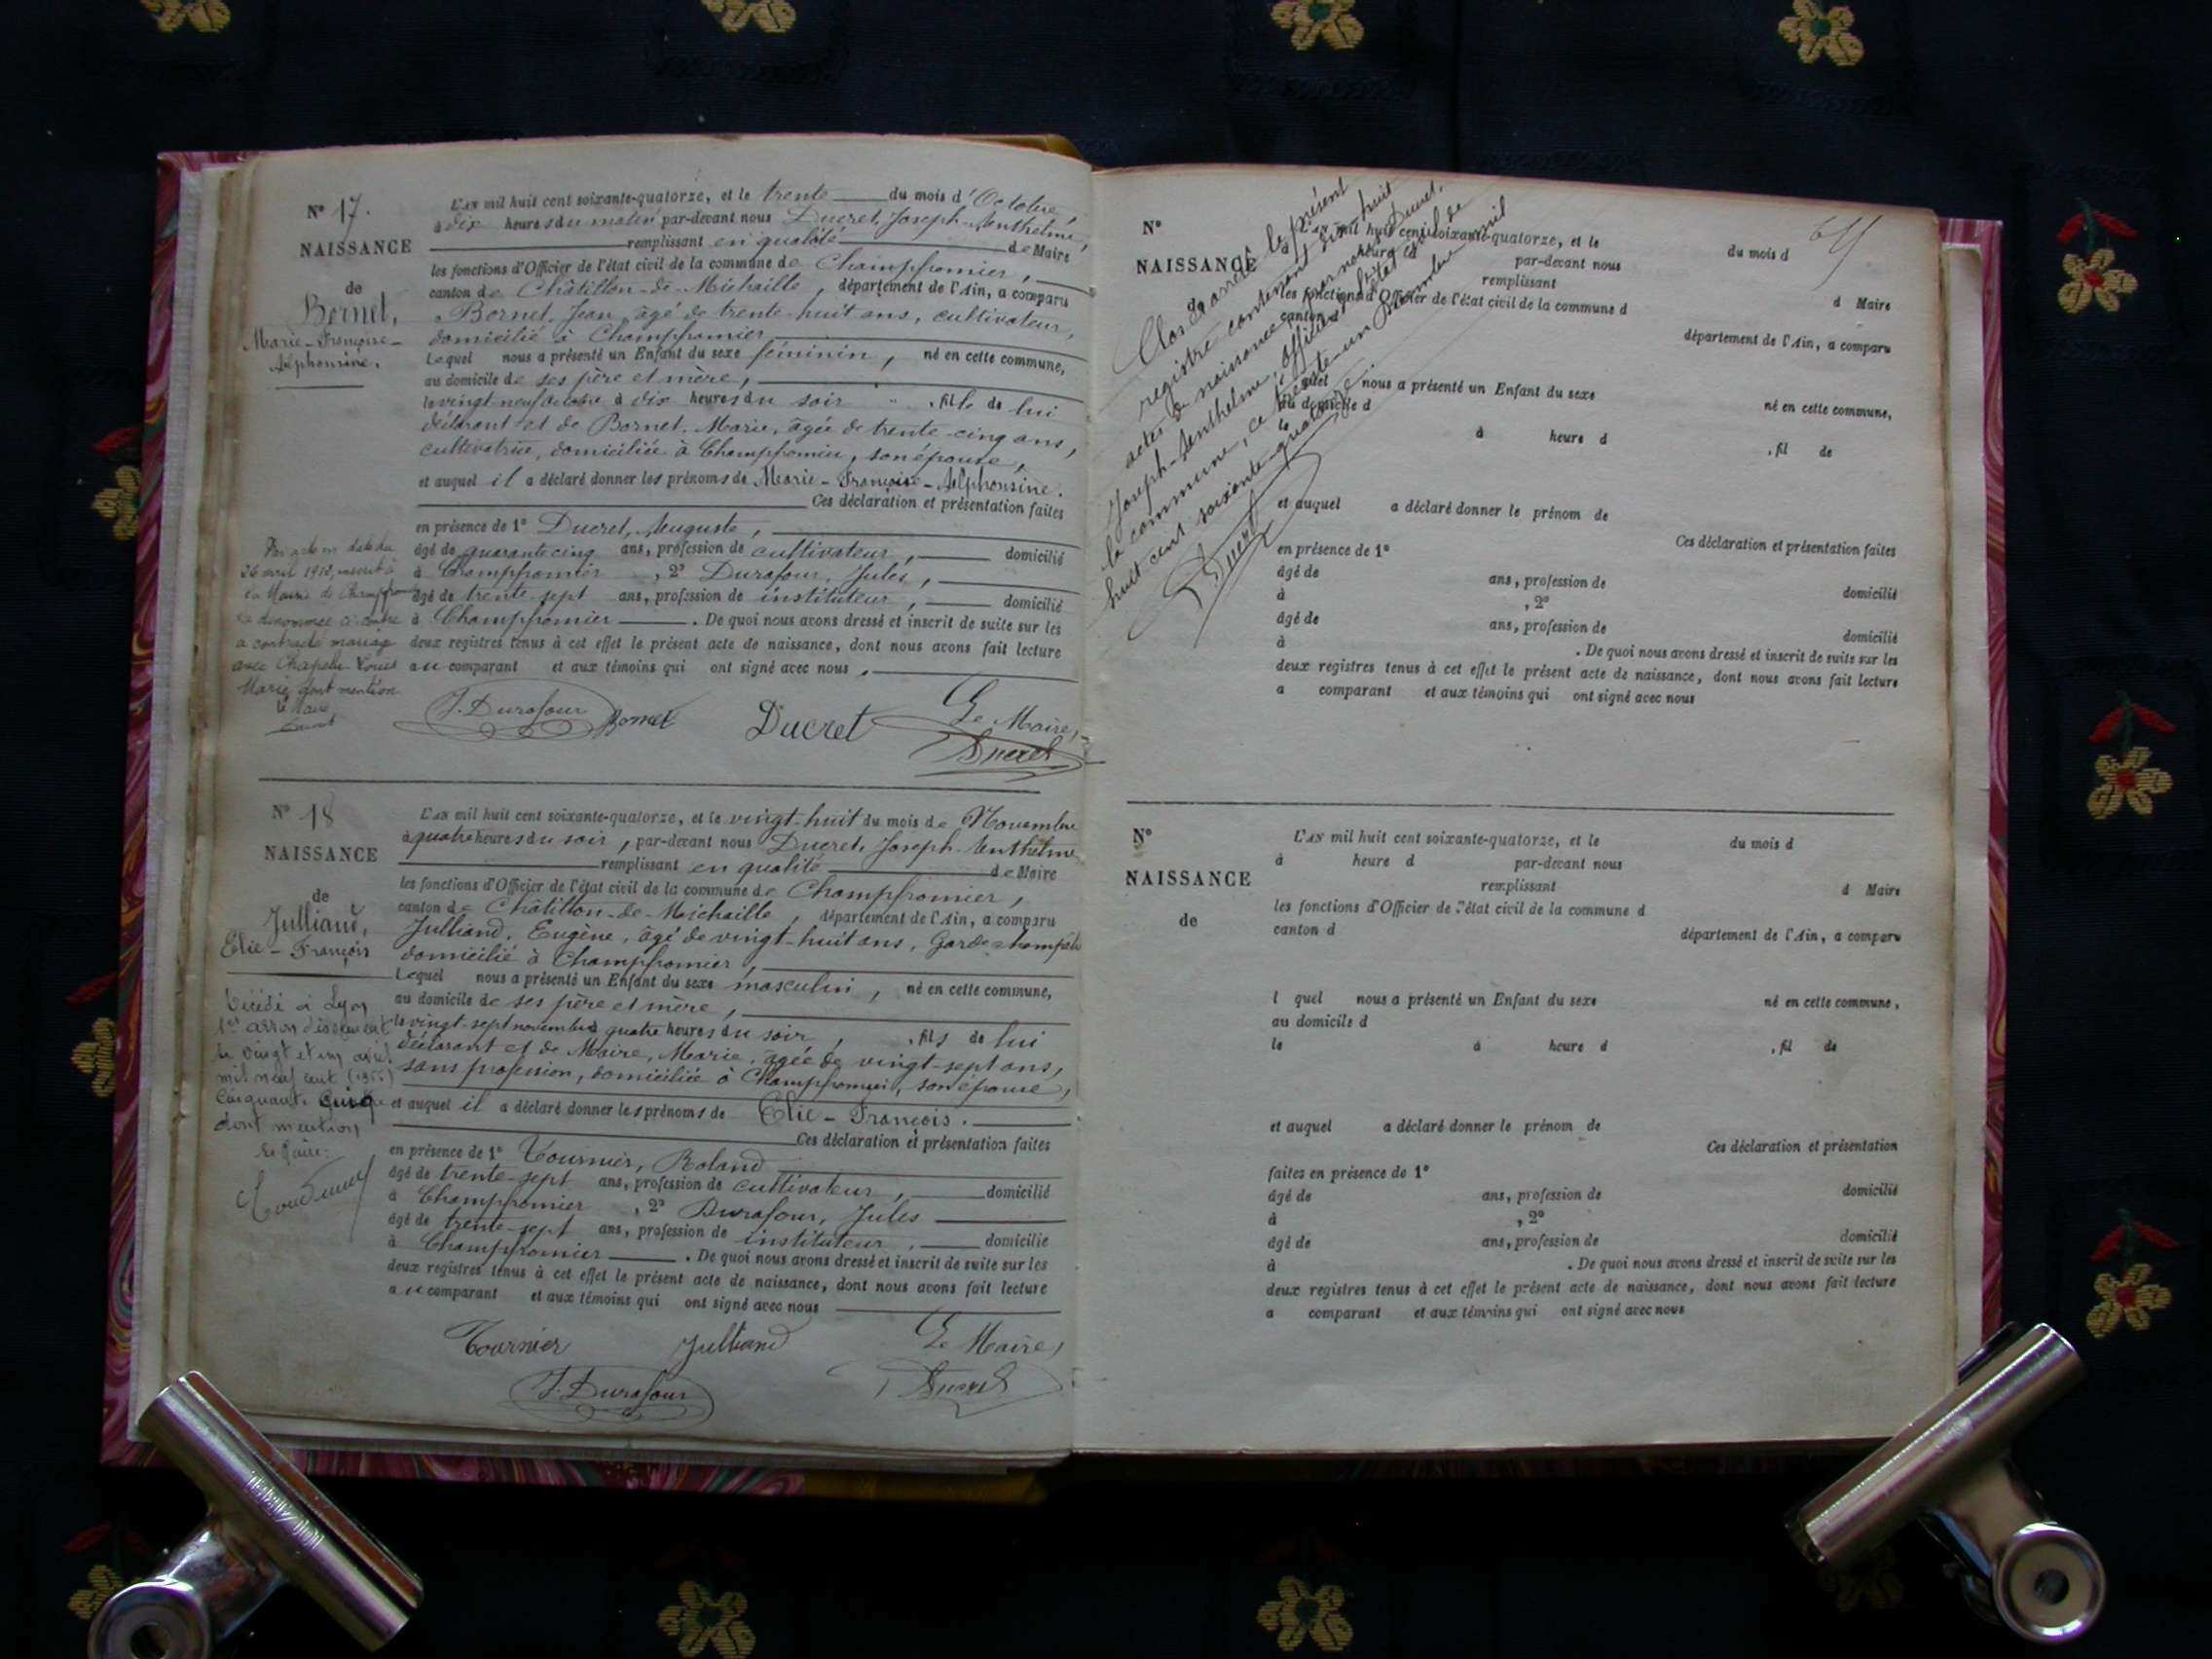 N° 17.
NAISSANCE
de
Bornet,
Marie-Françoise-
Alphonsine.
L'AN mil huit cent soixante-quatorze, et le trente du mois d'Octobre,
à dix heures du matin par-devant nous Ducret, Joseph-Anthelme,
remplissant en qualité de Maire
les fonctions d'Officier de l'état civil de la commune de Champfromier,
canton de Châtillon-de-Michaille, département de l'Ain, a comparu
Bornet, Jean, âgé de trente-huit ans, cultivateur,
domicilié à Champfromier,
Lequel nous a présenté un Enfant du sexe féminin, né en cette commune,
au domicile de ses père et mère,
le vingt-neuf octobre à dix heures du soir, fille de lui
déclarant et de Bornet, Marie, âgée de trente-cinq ans,
cultivatrice, domiciliée à Champfromier, son épouse,
et auquel il a déclaré donner les prénoms de Marie-Françoise-Alphonsine.
Ces déclaration et présentation faites
en présence de 1° Ducret, Auguste,
âgé de quarante cinq ans, profession de cultivateur, domicilié
à Champfromier, 2° Durafour, Jules,
âgé de trente sept ans, profession de instituteur, domicilié
à Champfromier. De quoi nous avons dressé et inscrit de suite sur les
deux registres tenus à cet effet le présent acte de naissance, dont nous avons fait lecture
au comparant et aux témoins qui ont signé avec nous.
Par acte en date du
26 avril 1912, inscrit à
la Mairie de Champfromier
la dénommée ci-contre
a contracté mariage
avec Chapelu Louis
Marie dont mention
Le Maire
Ducret
J. Durafour Bornet Ducret Le Maire,
Ducret
N° 18
NAISSANCE
de
Julliand,
Elie-François
L'AN mil huit cent soixante-quatorze, et le vingt-huit du mois de Novembre
à quatre heures du soir, par-devant nous Ducret, Joseph-Anthelme
remplissant en qualité de Maire
les fonctions d'Officier de l'état civil de la commune de Champfromier,
canton de Châtillon-de-Michaille, département de l'Ain, a comparu
Julliand, Eugène, âgé de vingt-huit ans, Garde-champêtre
domicilié à Champfromier,
Lequel nous a présenté un Enfant du sexe masculin, né en cette commune,
au domicile de ses père et mère,
le vingt-sept novembre à quatre heures du soir, fils de lui
déclarant et de Maire, Marie, âgée de vingt-sept ans,
sans profession, domiciliée à Champfromier, son épouse,
et auquel il a déclaré donner les prénoms de Elie-François.
Ces déclaration et présentation faites
en présence de 1° Tournier, Roland
âgé de trente-sept ans, profession de cultivateur, domicilié
à Champfromier, 2° Durafour, Jules
âgé de trente-sept ans, profession de instituteur, domicilié
à Champfromier. De quoi nous avons dressé et inscrit de suite sur les
deux registres tenus à cet effet le présent acte de naissance, dont nous avons fait lecture
au comparant et aux témoins qui ont signé avec nous
Décédé à Lyon
1er arrondissement
le vingt et un avril
mil neuf cent (1955)
cinquante cinq
dont mention
Le Maire:
Tournier Julliand Le Maire,
J. Durafour Ducret
Clos et arrêté le présent
registre contenant dix huit
actes de naissance par nous Ducret,
Joseph-Anthelme, officier de l'état civil de
la commune, ce trente-un Décembre mil
huit cent soixante-quatorze.
Ducret
N°
NAISSANCE
L'AN mil huit cent soixante-quatorze, et le du mois d
heure d par-devant nous
remplissant d Maire
les fonctions d'Officier de l'état civil de la commune d
canton d département de l'Ain, a comparu
quel nous a présenté un Enfant du sexe né en cette commune,
au domicile d
le à heure d , fil de
et auquel a déclaré donner le prénom de
Ces déclaration et présentation faites
en présence de 1°
âgé de ans, profession de domicilié
à , 2°
âgé de ans, profession de domicilié
à . De quoi nous avons dressé et inscrit de suite sur les
deux registres tenus à cet effet le présent acte de naissance, dont nous avons fait lecture
a comparant et aux témoins qui ont signé avec nous
N°
NAISSANCE
de
L'AN mil huit cent soixante-quatorze, et le du mois d
à heure d par-devant nous
remplissant d Maire
les fonctions d'Officier de l'état civil de la commune d
canton d département de l'Ain, a comparu
l quel nous a présenté un Enfant du sexe né en cette commune,
au domicile d
le à heure d , fil de
et auquel a déclaré donner le prénom de
Ces déclaration et présentation
faites en présence de 1°
âgé de ans, profession de domicilié
à , 2°
âgé de ans, profession de domicilié
à . De quoi nous avons dressé et inscrit de suite sur les
deux registres tenus à cet effet le présent acte de naissance, dont nous avons fait lecture
a comparant et aux témoins qui ont signé avec nous